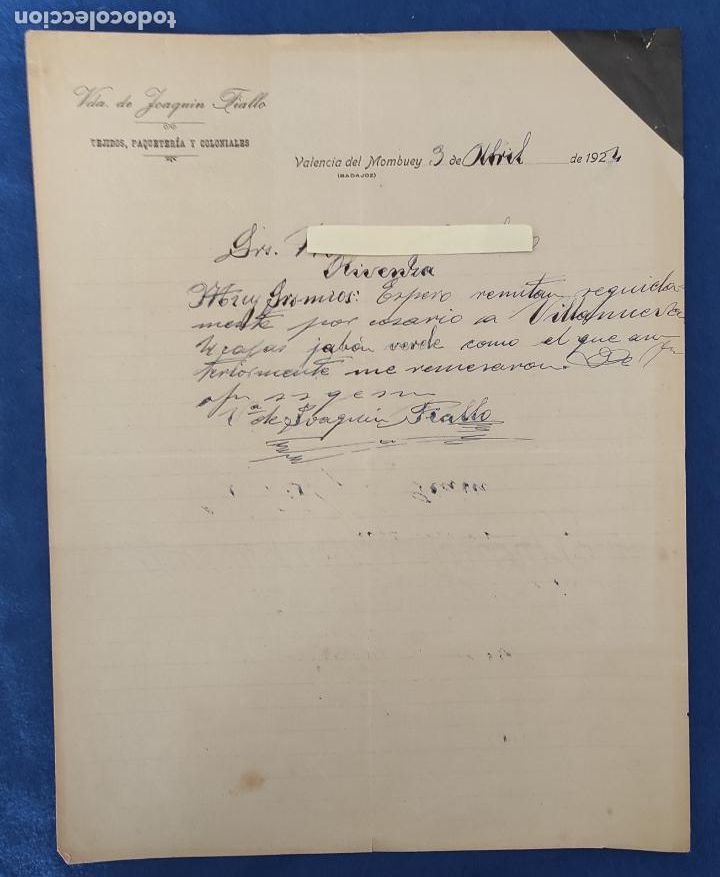 todocoleccion
Vda. de Joaquin Fiallo
TEJIDOS, PAQUETERÍA Y COLONIALES
Valencia del Mombuey 3 de Abril de 1922
(BADAJOZ)
Srs.
Olivenza
Muy Srs mios: Espero remitan seguida-
mente por cosario a Villanueva
cajas jabón verde como el que an-
teriormente me remesaron. De
Vª de Joaquin Fiallo